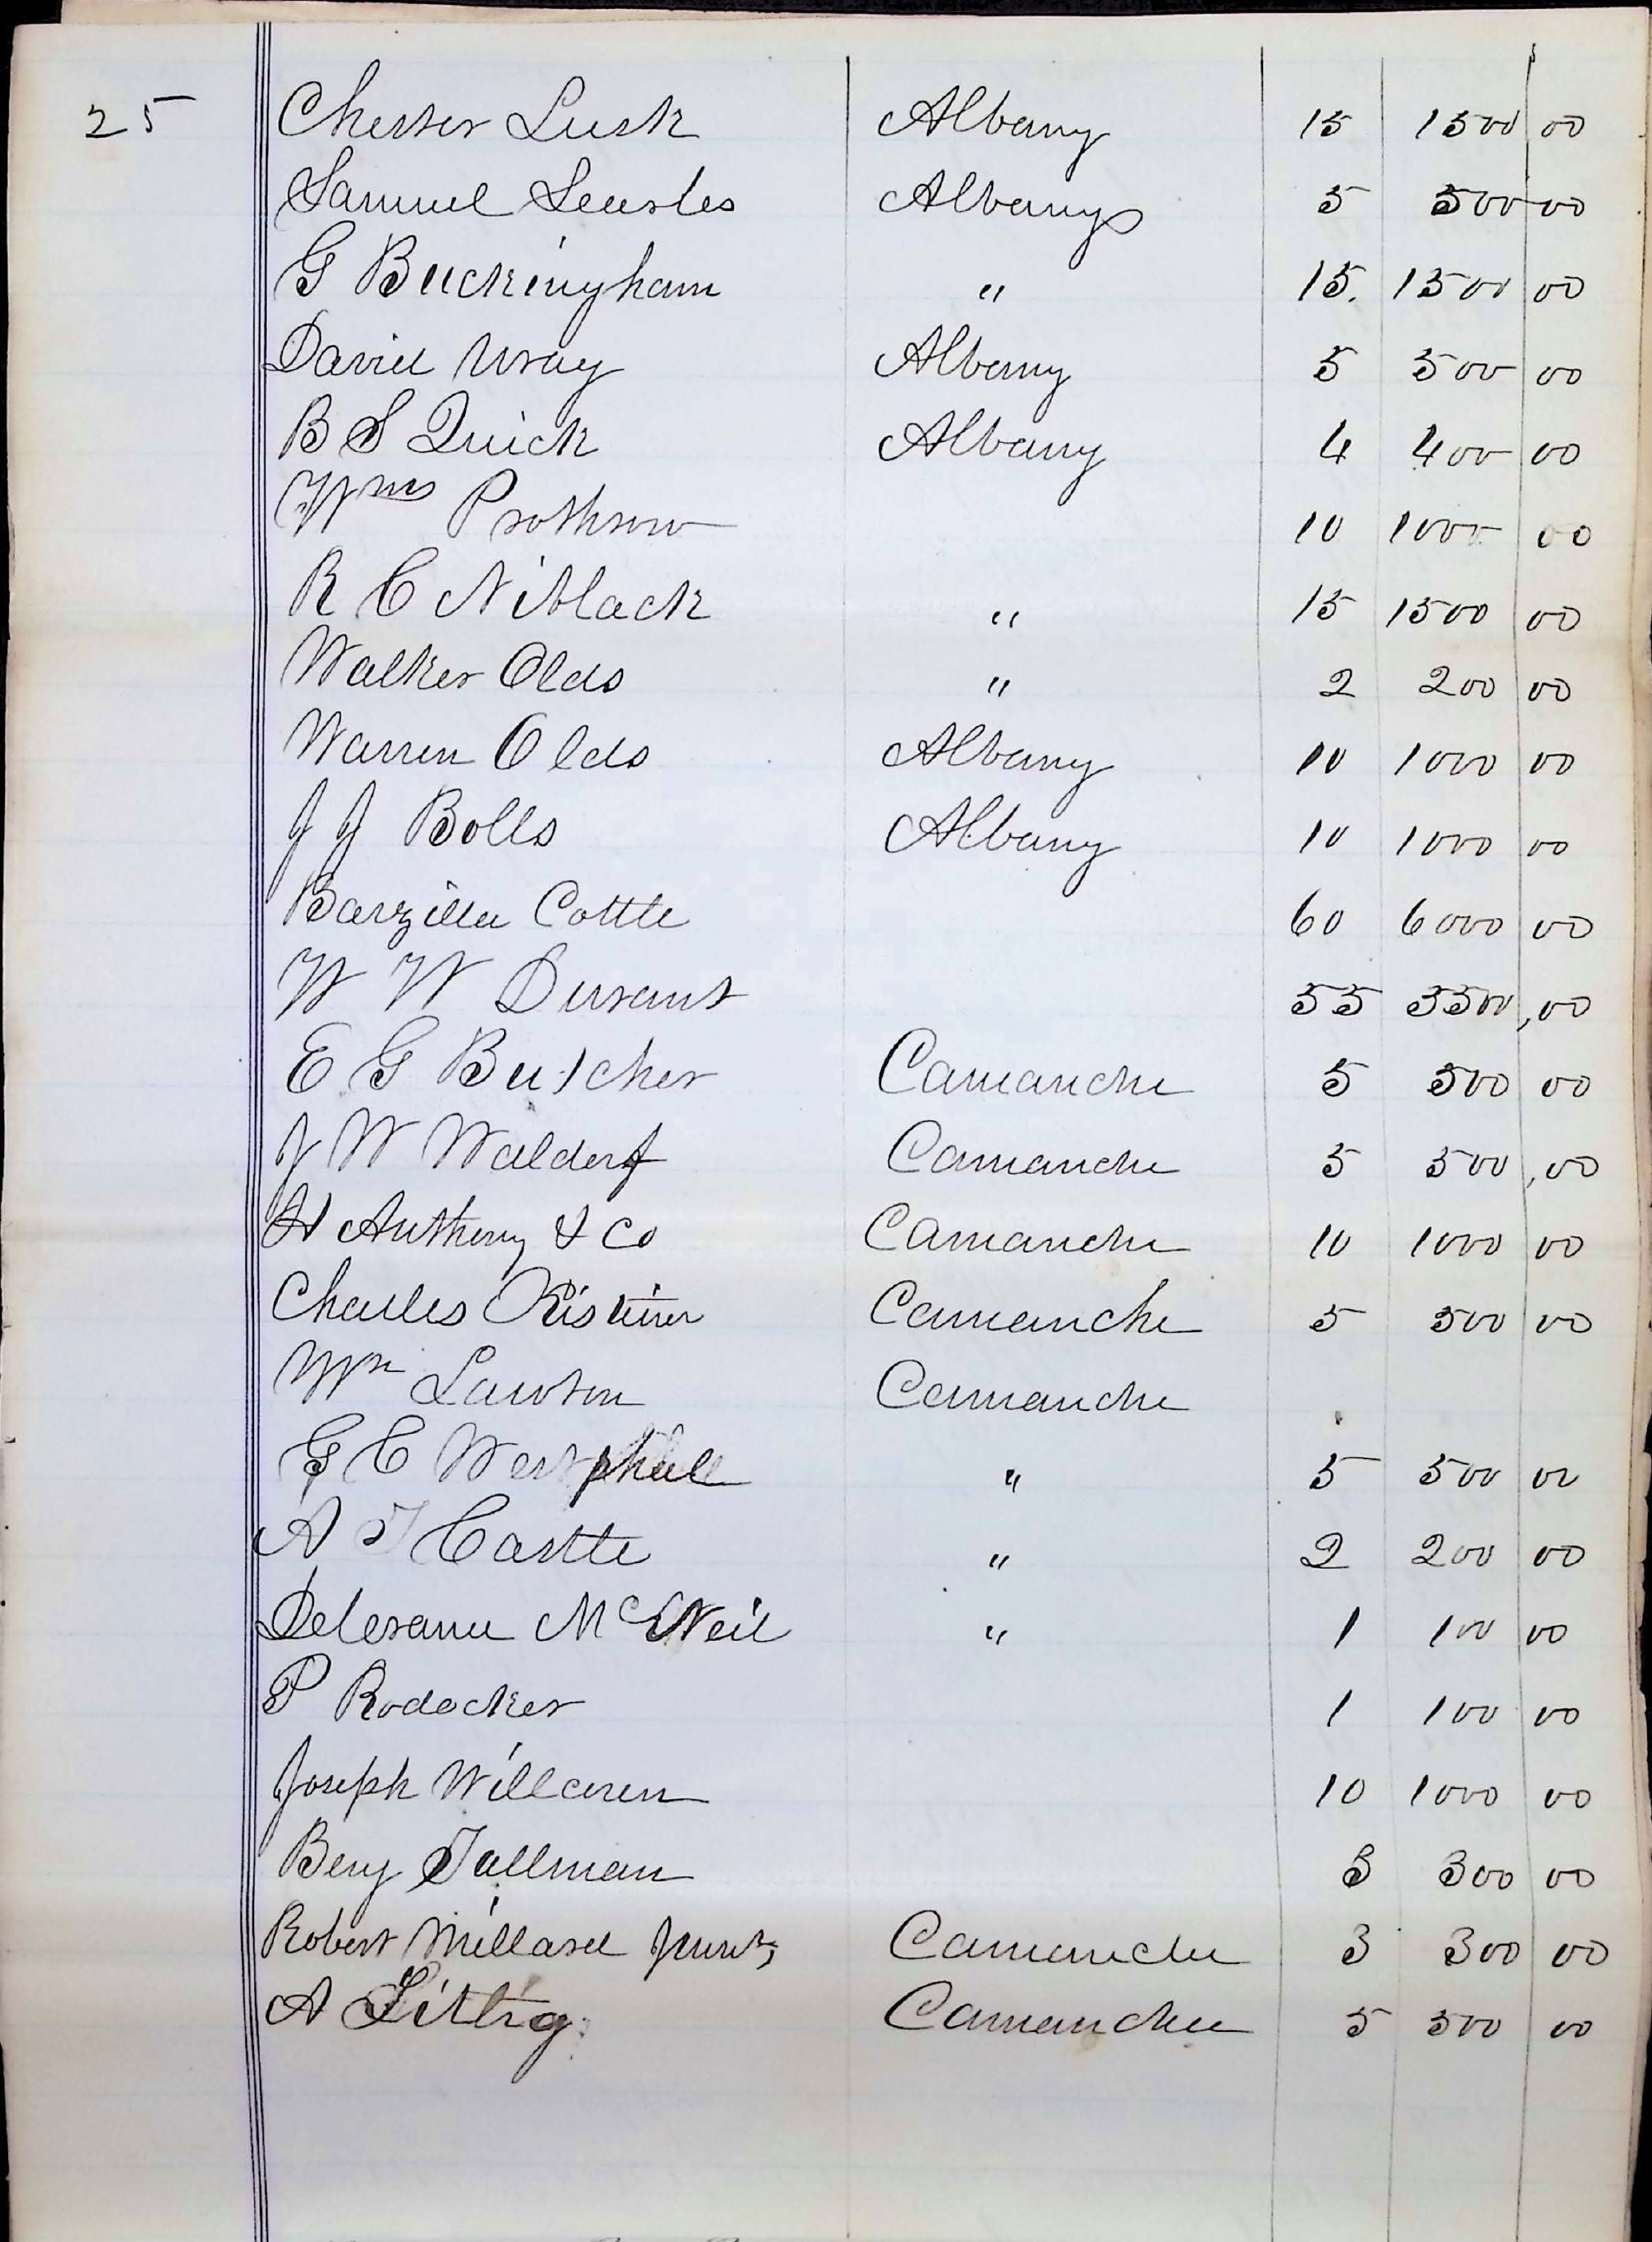 25 Chester Lusk Albany 15 1500 00
Samuel Searles Albany 5 500 00
G Buckingham " 15. 1500 00
David Wray Albany 5 500 00
B S Quick Albany 4 400 00
Wm Prothrow 10 1000 00
R C Niblack " 15 1500 00
Walker Olds " 2 200 00
Warren Olds Albany 10 1000 00
J J Bolls Albany 10 1000 00
Barzilla Cottle 60 6000 00
W W Durant 55 5500,00
E G Butcher Camanche 5 500 00
J W Waldorf Camanche 5 500,00
H Anthony & Co Camanche 10 1000 00
Charles Camanche 5 500 00
Wm Lawson Camanche
G C Westphall " 5 500 00
A T Castle " 2 200 00
McNeil " 1 100 00
P Rodocker 1 100 00
Joseph 10 1000 00
Benj Tallman 3 300 00
Robert Millard Junr Camanche 3 300 00
A Littig Camanche 5 500 00